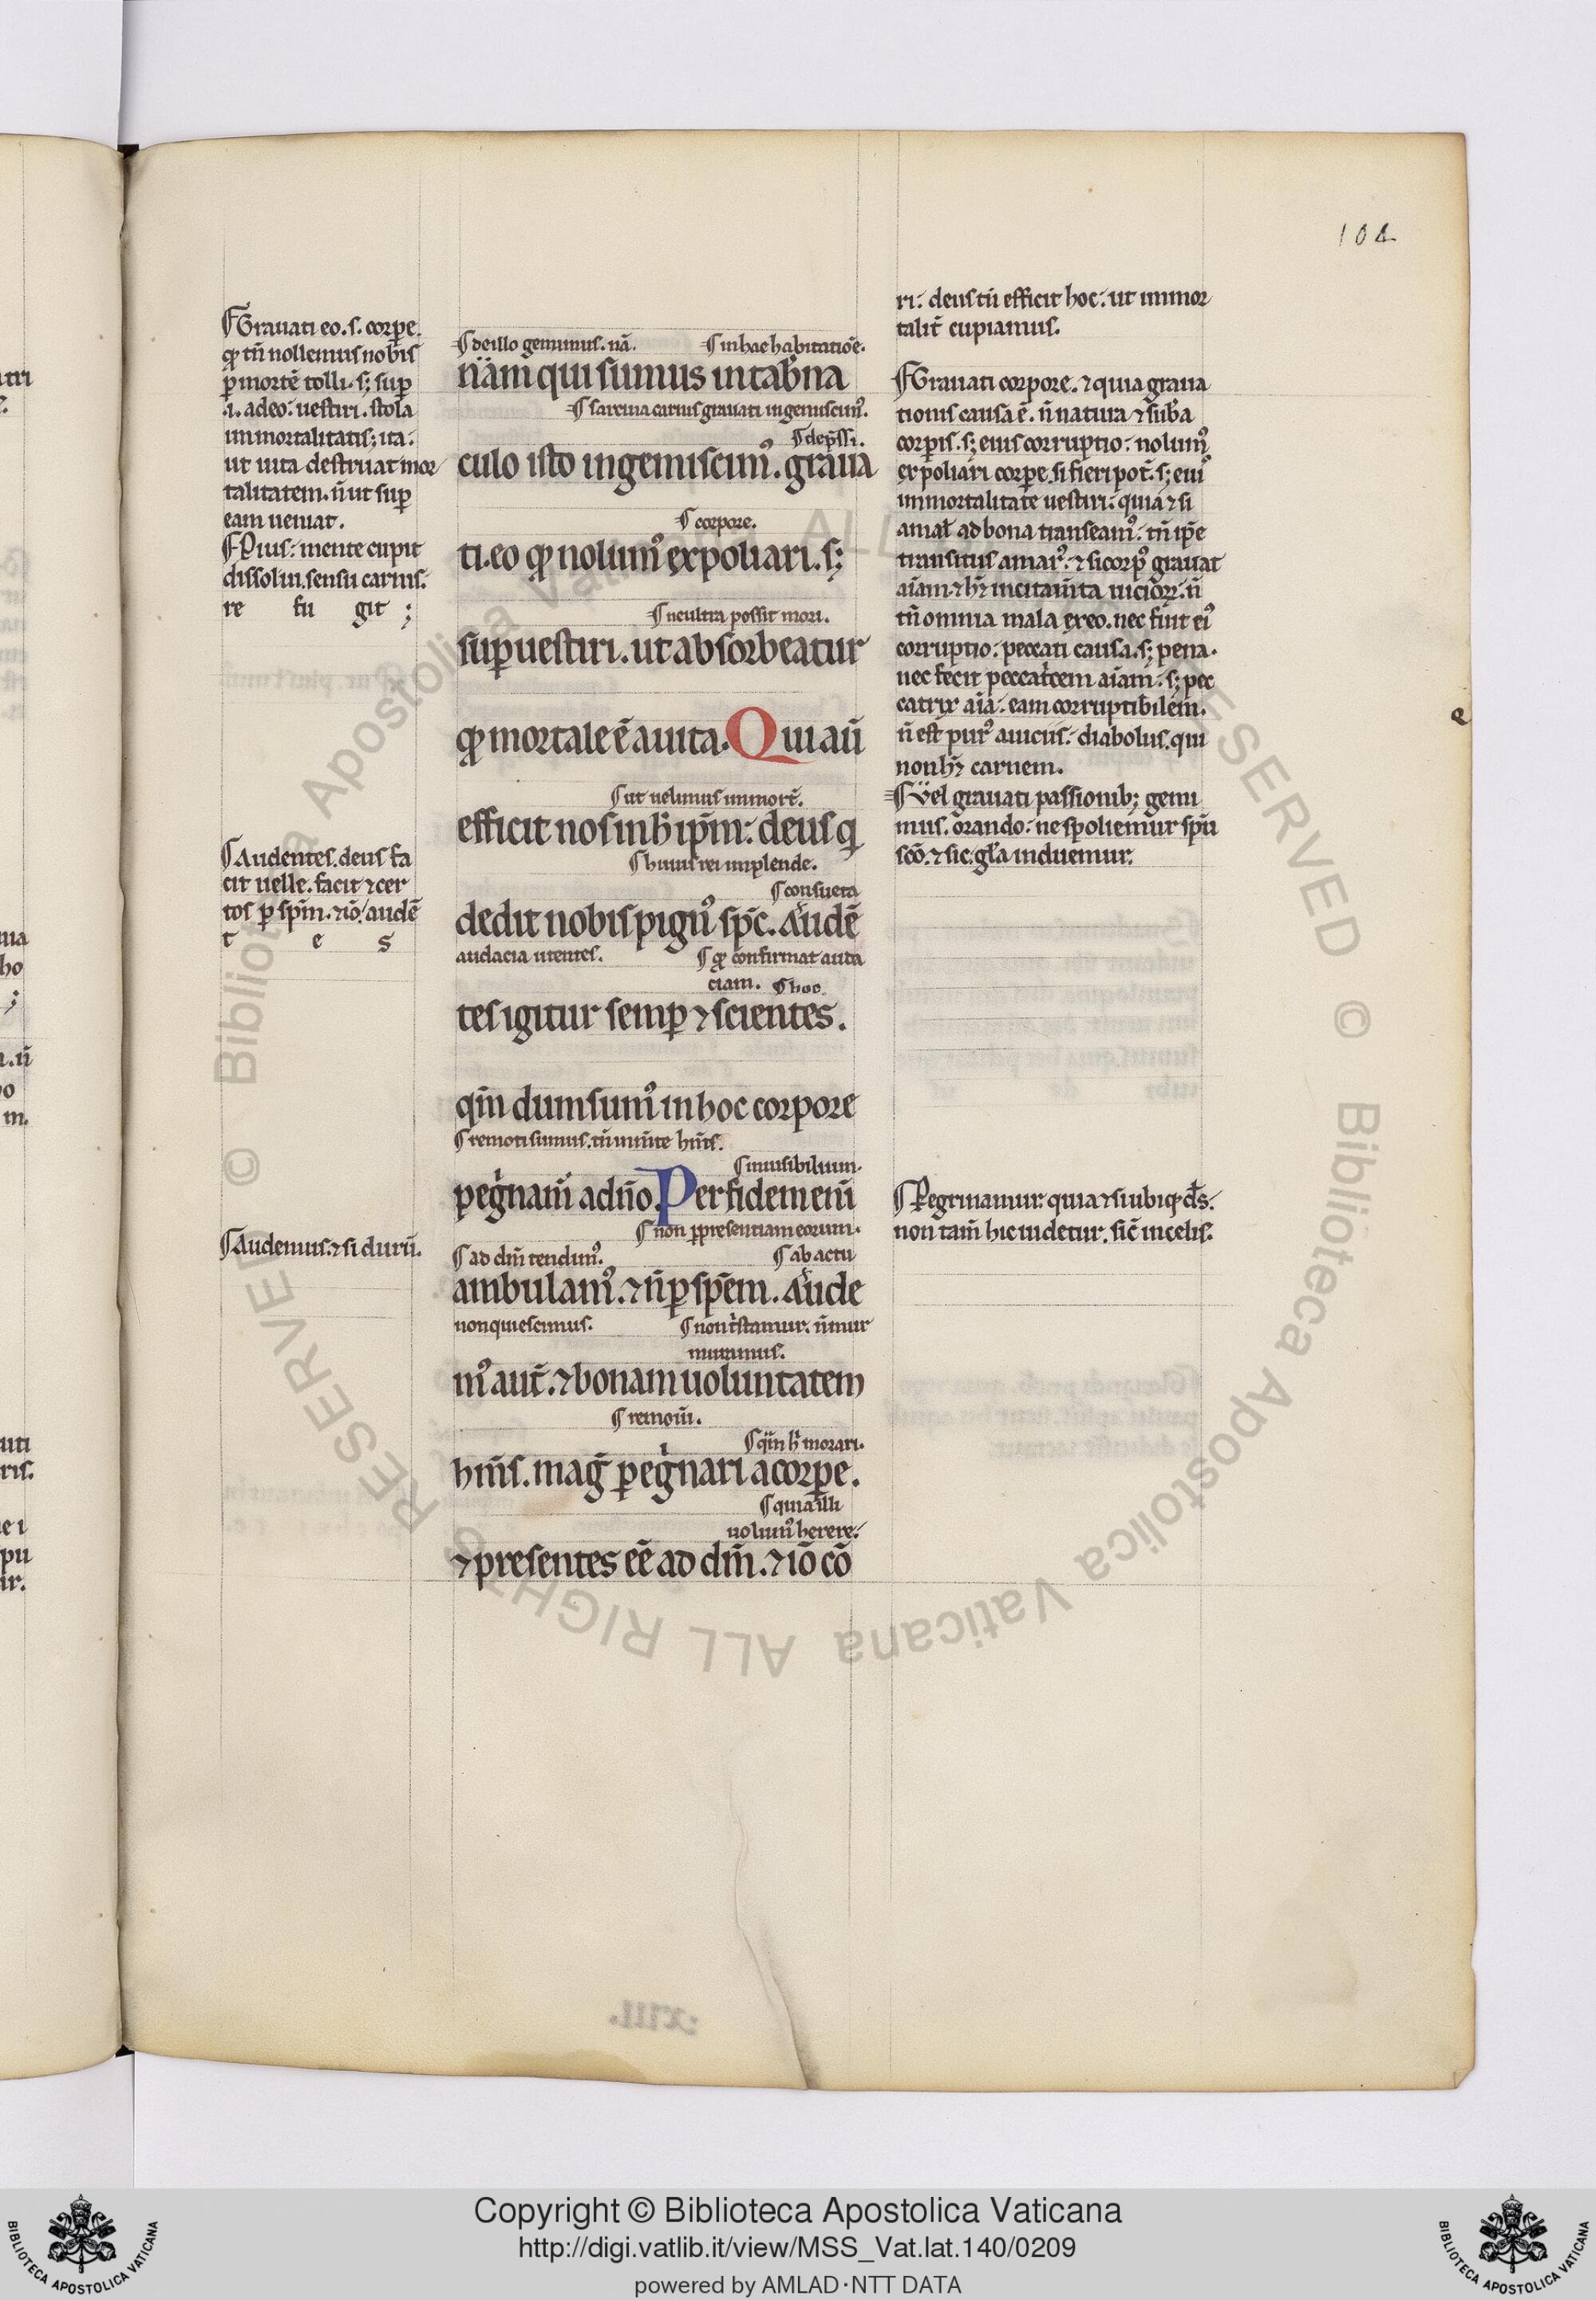 104
¶Grauati eo.ſ. corꝑe.
ꝙ tn̄ nollemus nobis
ꝑ mortē tolli. ſ; suꝑ
.i. a deo: ueſtiri. ſtola
immortalitatis; ita:
ut uita deſtruat mor
talitatem. n̄ ut suꝑ
eam ueniat.
¶Pius: mente cupit
diſſolui. ſenſu carnis:
re fu git ;
¶Audentes. deus fa
cit uelle. facit ⁊ cer
tos ꝑ ſpm̄. ⁊ iō: audē
t e s
¶Audemus. ⁊ ſi durū.
¶de illo gemimus. nā. ¶in hac habitatiōe.
nam qui ſumus in tab̄na
¶ſarcina carnis grauati ingemiſcimꝰ.
¶dep̄ſſi.
culo iſto ingemiſcimꝰ. graua
¶corpore.
ti. eo ꝙ nolumꝰ expoliari. ſ;
¶ne ultra poſſit mori.
ſuꝑueſtiri. ut abſorbeatur
ꝙ mortale ē a uita. Qui aū
¶ut uelimus immort̄.
efficit nos in h̄ ipm̄: deus q
¶huius rei implende.
¶conſueta
dedit nobis pignꝰ ſpc̄. Audē
audacia utentes. ¶ꝙ confirmat auda
ciam. ¶hoc.
tes igitur ſemꝑ ⁊ ſcientes.
qm̄ dum ſumꝰ in hoc corpore
¶remoti ſumus.
¶inuiſibilium.
ꝑeg̍namꝰ a dn̄o. Per fidem enī
¶non ꝑ preſentiam eorum.
¶ad dm̄ tendimꝰ. ¶ab actu
ambulamꝰ. ⁊ n̄ ꝑ ſpēm. Aude
non quieſcimus. ¶non t̍ſtamur. n̄ mur
muramus.
mꝰ aut̄. ⁊ bonam uoluntatem
¶remoui.
¶qm̄ h̄ morari.
hm̄s. mag̍ ꝑeg̍nari a corꝑe.
¶quia illi
uolumꝰ herere:
⁊ preſentes eē ad dm̄. ⁊ iō cō
ri: deus tn̄ efficit hoc: ut immor
talit̄ cupiamus.
¶Grauati corpore. ⁊ quia graua
tionis cauſa ē. n̄ natura ⁊ ſub̄a
corꝑis. ſ; eius corruptio: nolumꝰ
expoliari corꝑe. ſi fieri pot̄. ſ; eiꝰ
immortalitate ueſtiri: quia ⁊ ſi
ad bona tranſeamꝰ: tn̄ ip̄e
tranſitus amarꝰ. ⁊ ſi corpꝰ grauat
aīam. ⁊ hꝫ incitam̄ta uicioꝝ: n̄
tn̄ omnia mala ex eo. nec fuit eiꝰ
corruptio: peccati cauſa. ſ; pena.
nec fecit peccatͥcem aīam: ſ; pec
catrix aīa: eam corruptibilem.
n̄ eſt purꝰ a uiciis: diabolus. qui
non hꝫ carnem.
¶Vel grauati paſſionib; gemi
mus. orando: ne ſpoliemur ſpū
ſcō. ⁊ ſic gl̄a induemur.
¶Peregrinamur: quia ⁊ ſi ubiqꝫ ds̄:
non tam̄ hic uidetur. ſic̄ in celis.
.xiii.
Copyright © Biblioteca Apostolica Vaticana
http://digi.vatlib.it/view/MSS_Vat.lat.140/0209
powered by AMLAD·NTT DATA
BIBLIOTECA APOSTOLICA VATICANA
BIBLIOTECA APOSTOLICA VATICANA
© Biblioteca Apostolica Vaticana ALL RIGHTS RESERVED © Biblioteca Apostolica Vaticana ALL RIGHTS RESERVED